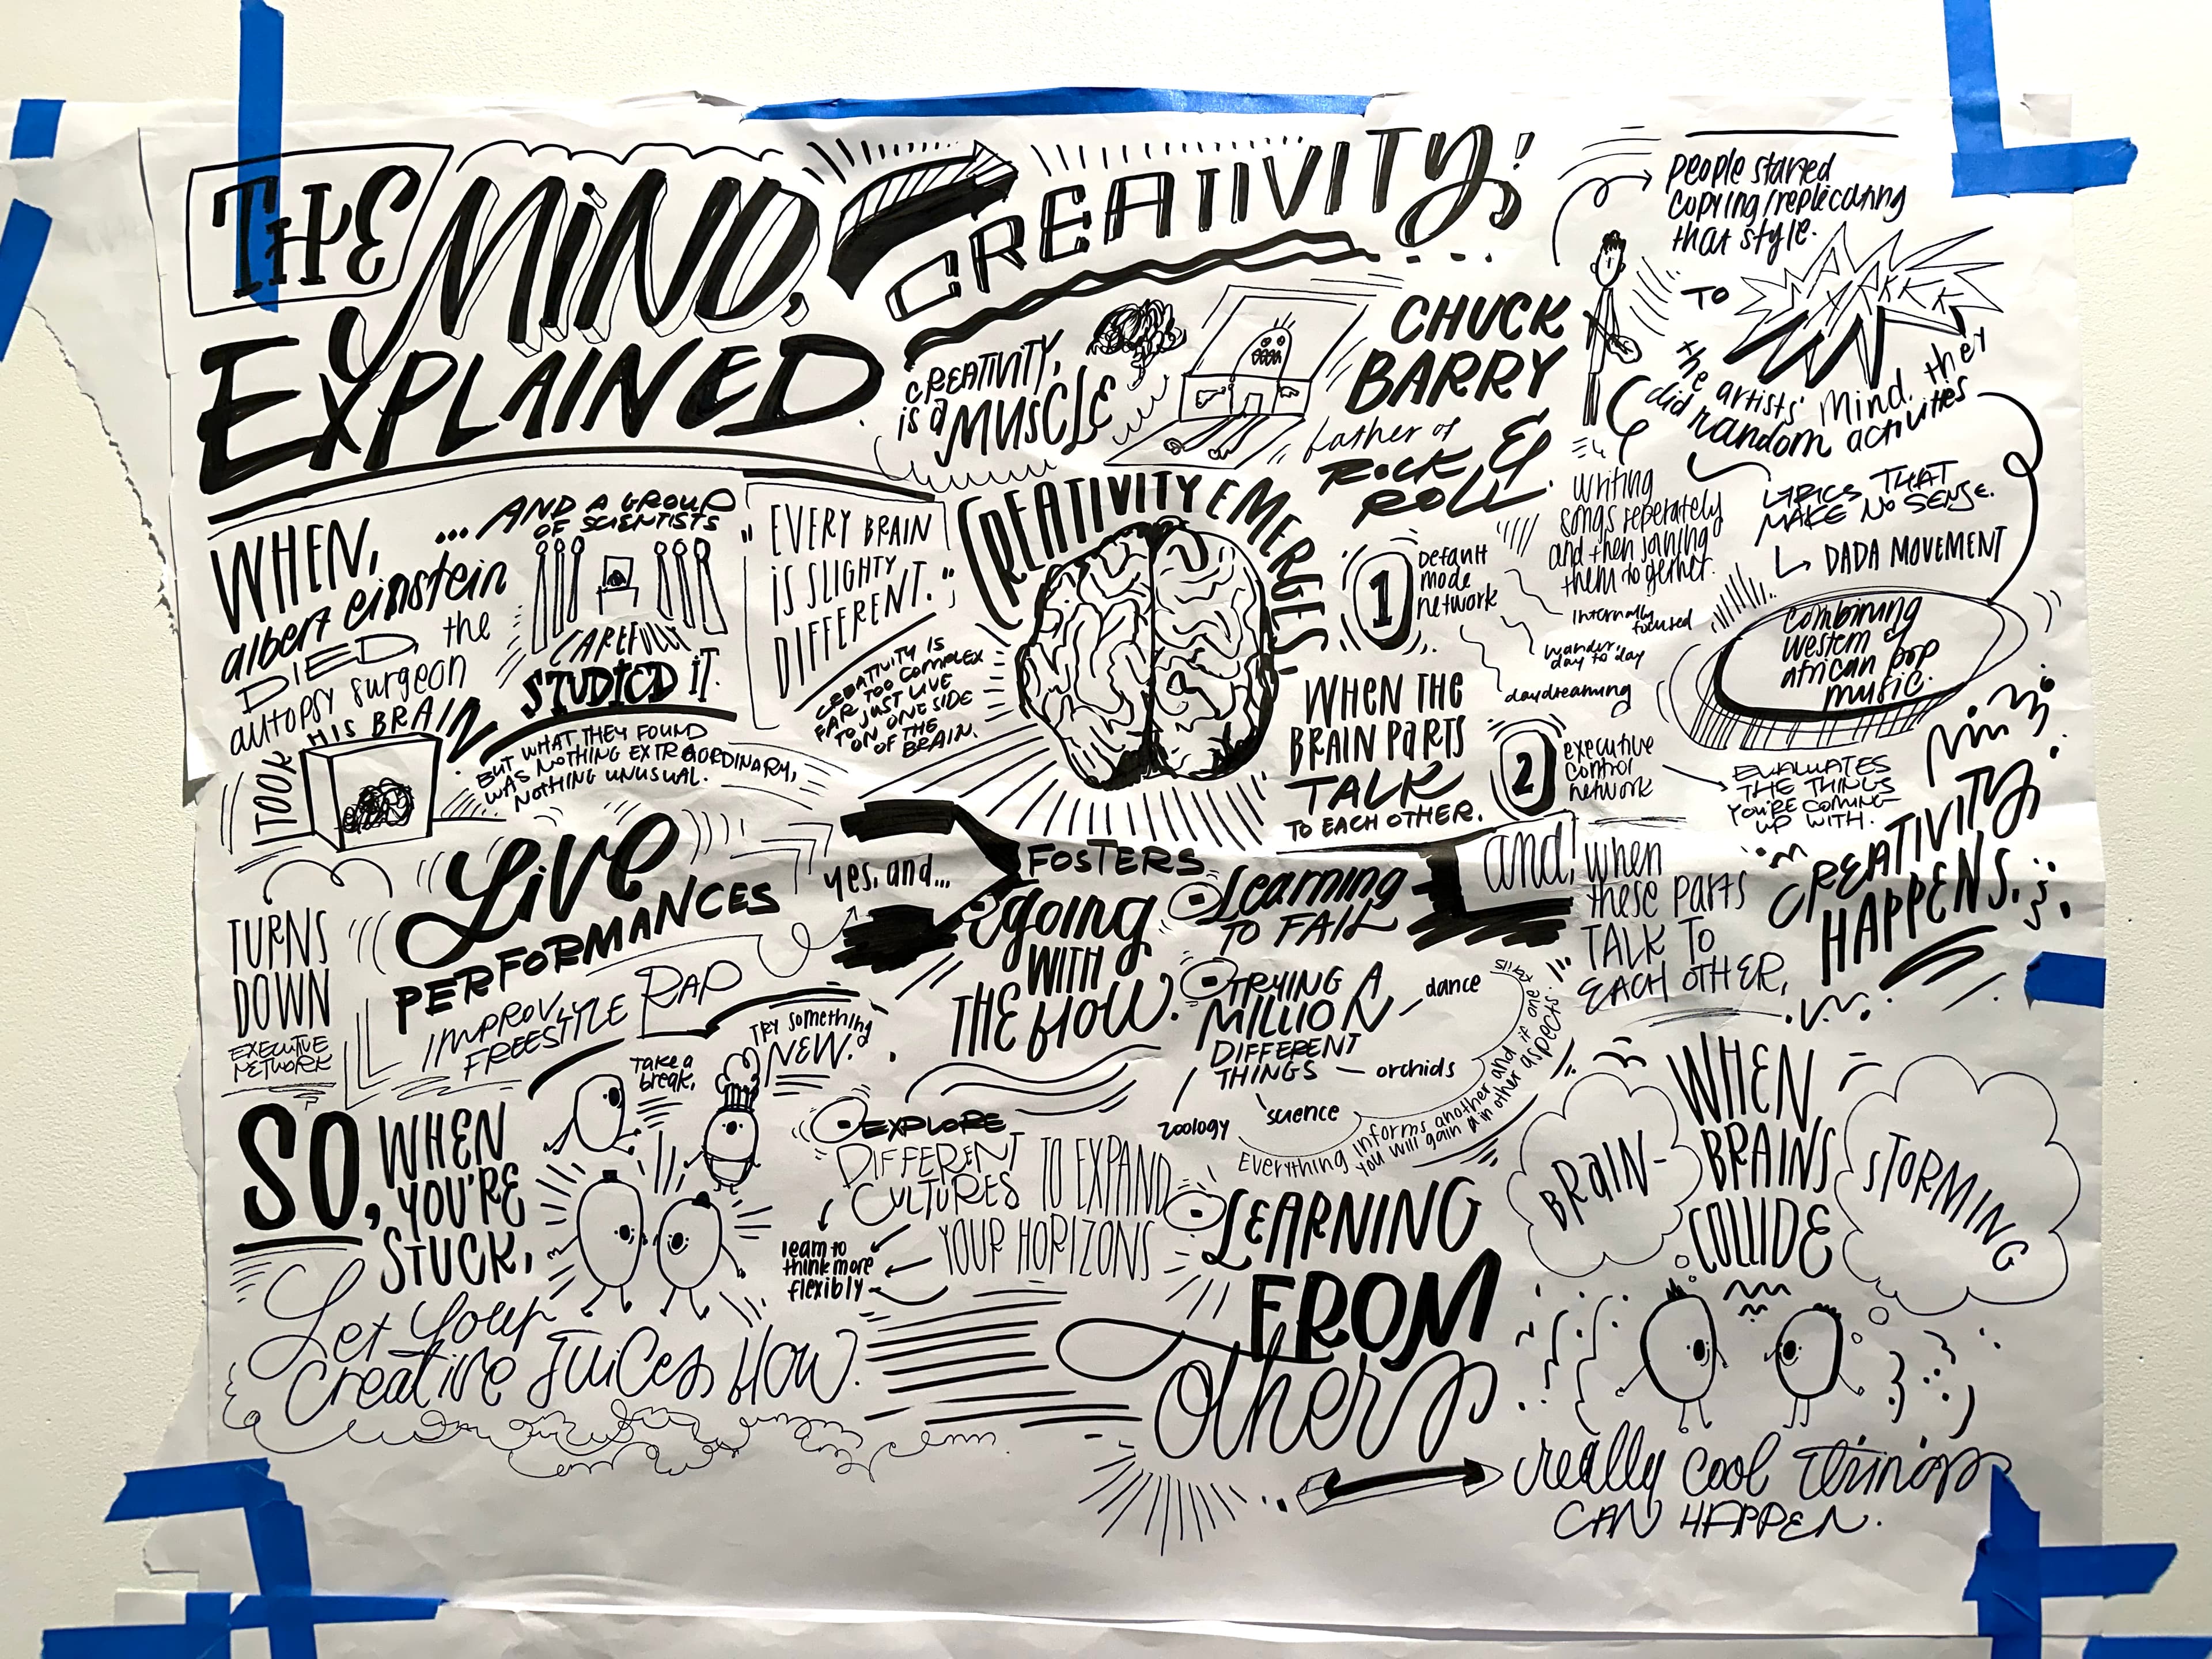 THE MIND,
EXPLAINED
CREATIVITY;
CREATIVITY,
is a
MUSCLE
CHUCK
BARRY
father of
ROCK &
ROLL.
people started
copying/replicating
that style.
TO
the artists' mind, they
did random activities
writing
songs seperately
and then joining
them together.
LYRICS THAT
MAKE NO SENSE.
DADA MOVEMENT
combining
western &
african pop
music.
WHEN,
albert einstein
DIED, the
autopsy surgeon
TOOK HIS BRAIN
... AND A GROUP
OF SCIENTISTS
CAREFULLY
STUDIED IT.
BUT WHAT THEY FOUND
WAS NOTHING EXTRAORDINARY,
NOTHING UNUSUAL.
"EVERY BRAIN
IS SLIGHTY
DIFFERENT."
CREATIVITY IS
FAR TOO COMPLEX
TO JUST LIVE
ON ONE SIDE
OF THE
BRAIN.
CREATIVITY EMERGES,
WHEN THE
BRAIN PARTS
TALK
TO EACH OTHER.
1
Default
mode
network
internally
focused
wander,
day to day
daydreaming
2
executive
control
network
EVALUATES
THE THINGS
YOU'RE COMING
UP WITH.
and, when
these parts
TALK TO
EACH OTHER,
CREATIVITY
HAPPENS.
TURNS
DOWN
EXECUTIVE
NETWORK
LIVE
PERFORMANCES
IMPROV,
FREESTYLE RAP
yes, and...
FOSTERS
going
WITH
THE flow.
Learning
TO FAIL
TRYING A
MILLION
DIFFERENT
THINGS
dance
orchids
science
zoology
Everything informs another and if one
you will gain it in other aspects.
SO, WHEN
YOU'RE
STUCK,
Let your
creative juices flow.
Take a
break,
TRY something
NEW.
EXPLORE
DIFFERENT
CULTURES TO EXPAND
YOUR HORIZONS
learn to
think more
flexibly
LEARNING
FROM
others
WHEN
BRAINS
COLLIDE
BRAIN-
STORMING
really cool things
CAN HAPPEN.